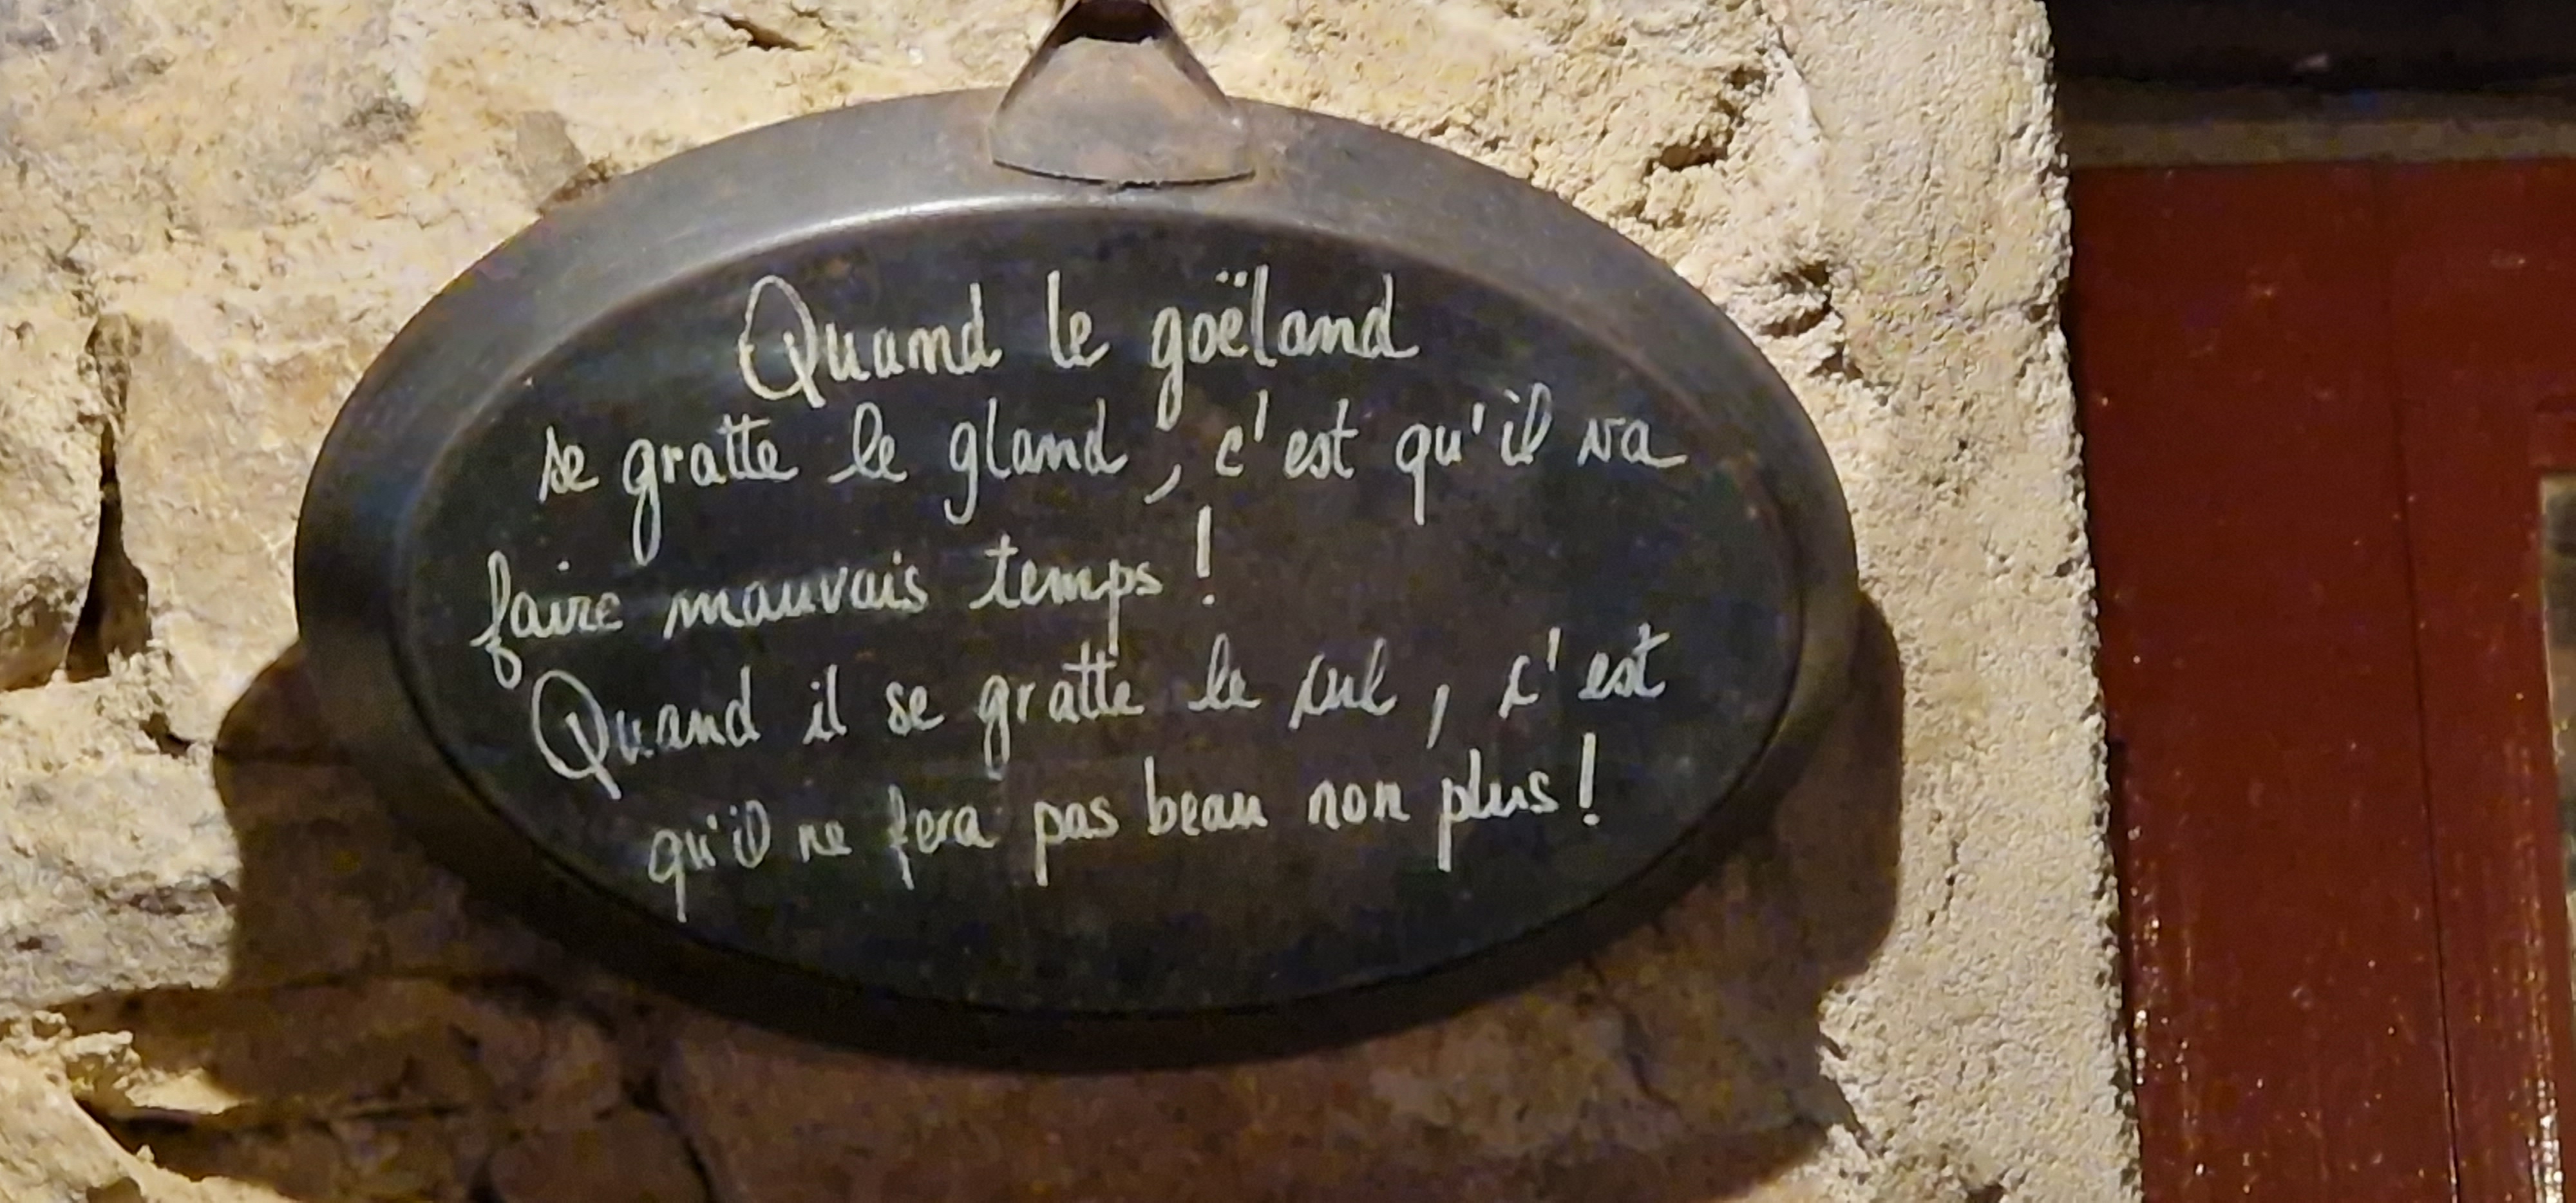 Quand le goëland
se gratte le gland, c'est qu'il va
faire mauvais temps !
Quand il se gratte le cul, c'est
qu'il ne fera pas beau non plus !